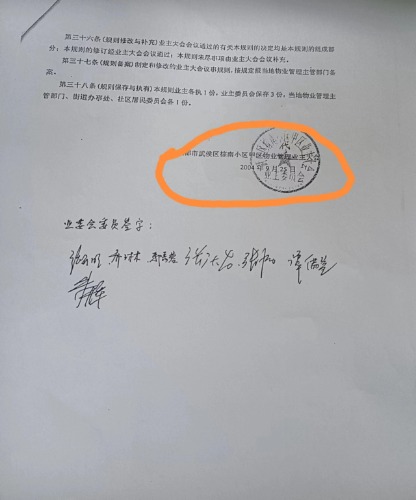 第三十六条(规则修改与补充)业主大会会议通过的有关本规则的决定均是本规则的组成部
分;本规则的修订经业主大会会议通过;本规则未尽事项由业主大会会议补充。
第三十七条(规则备案)制定和修改的业主大会议事规则,按规定报当地物业管理主管部门备
案。
第三十八条(规则保存与执有)本规则业主各执1份,业主委员会保存3份,当地物业管理主
管部门、街道办事处、社区居民委员会各1份。
都市武侯区棕南小区甲区物业管理业主大会
2004年8月28日
业委会委员签字: